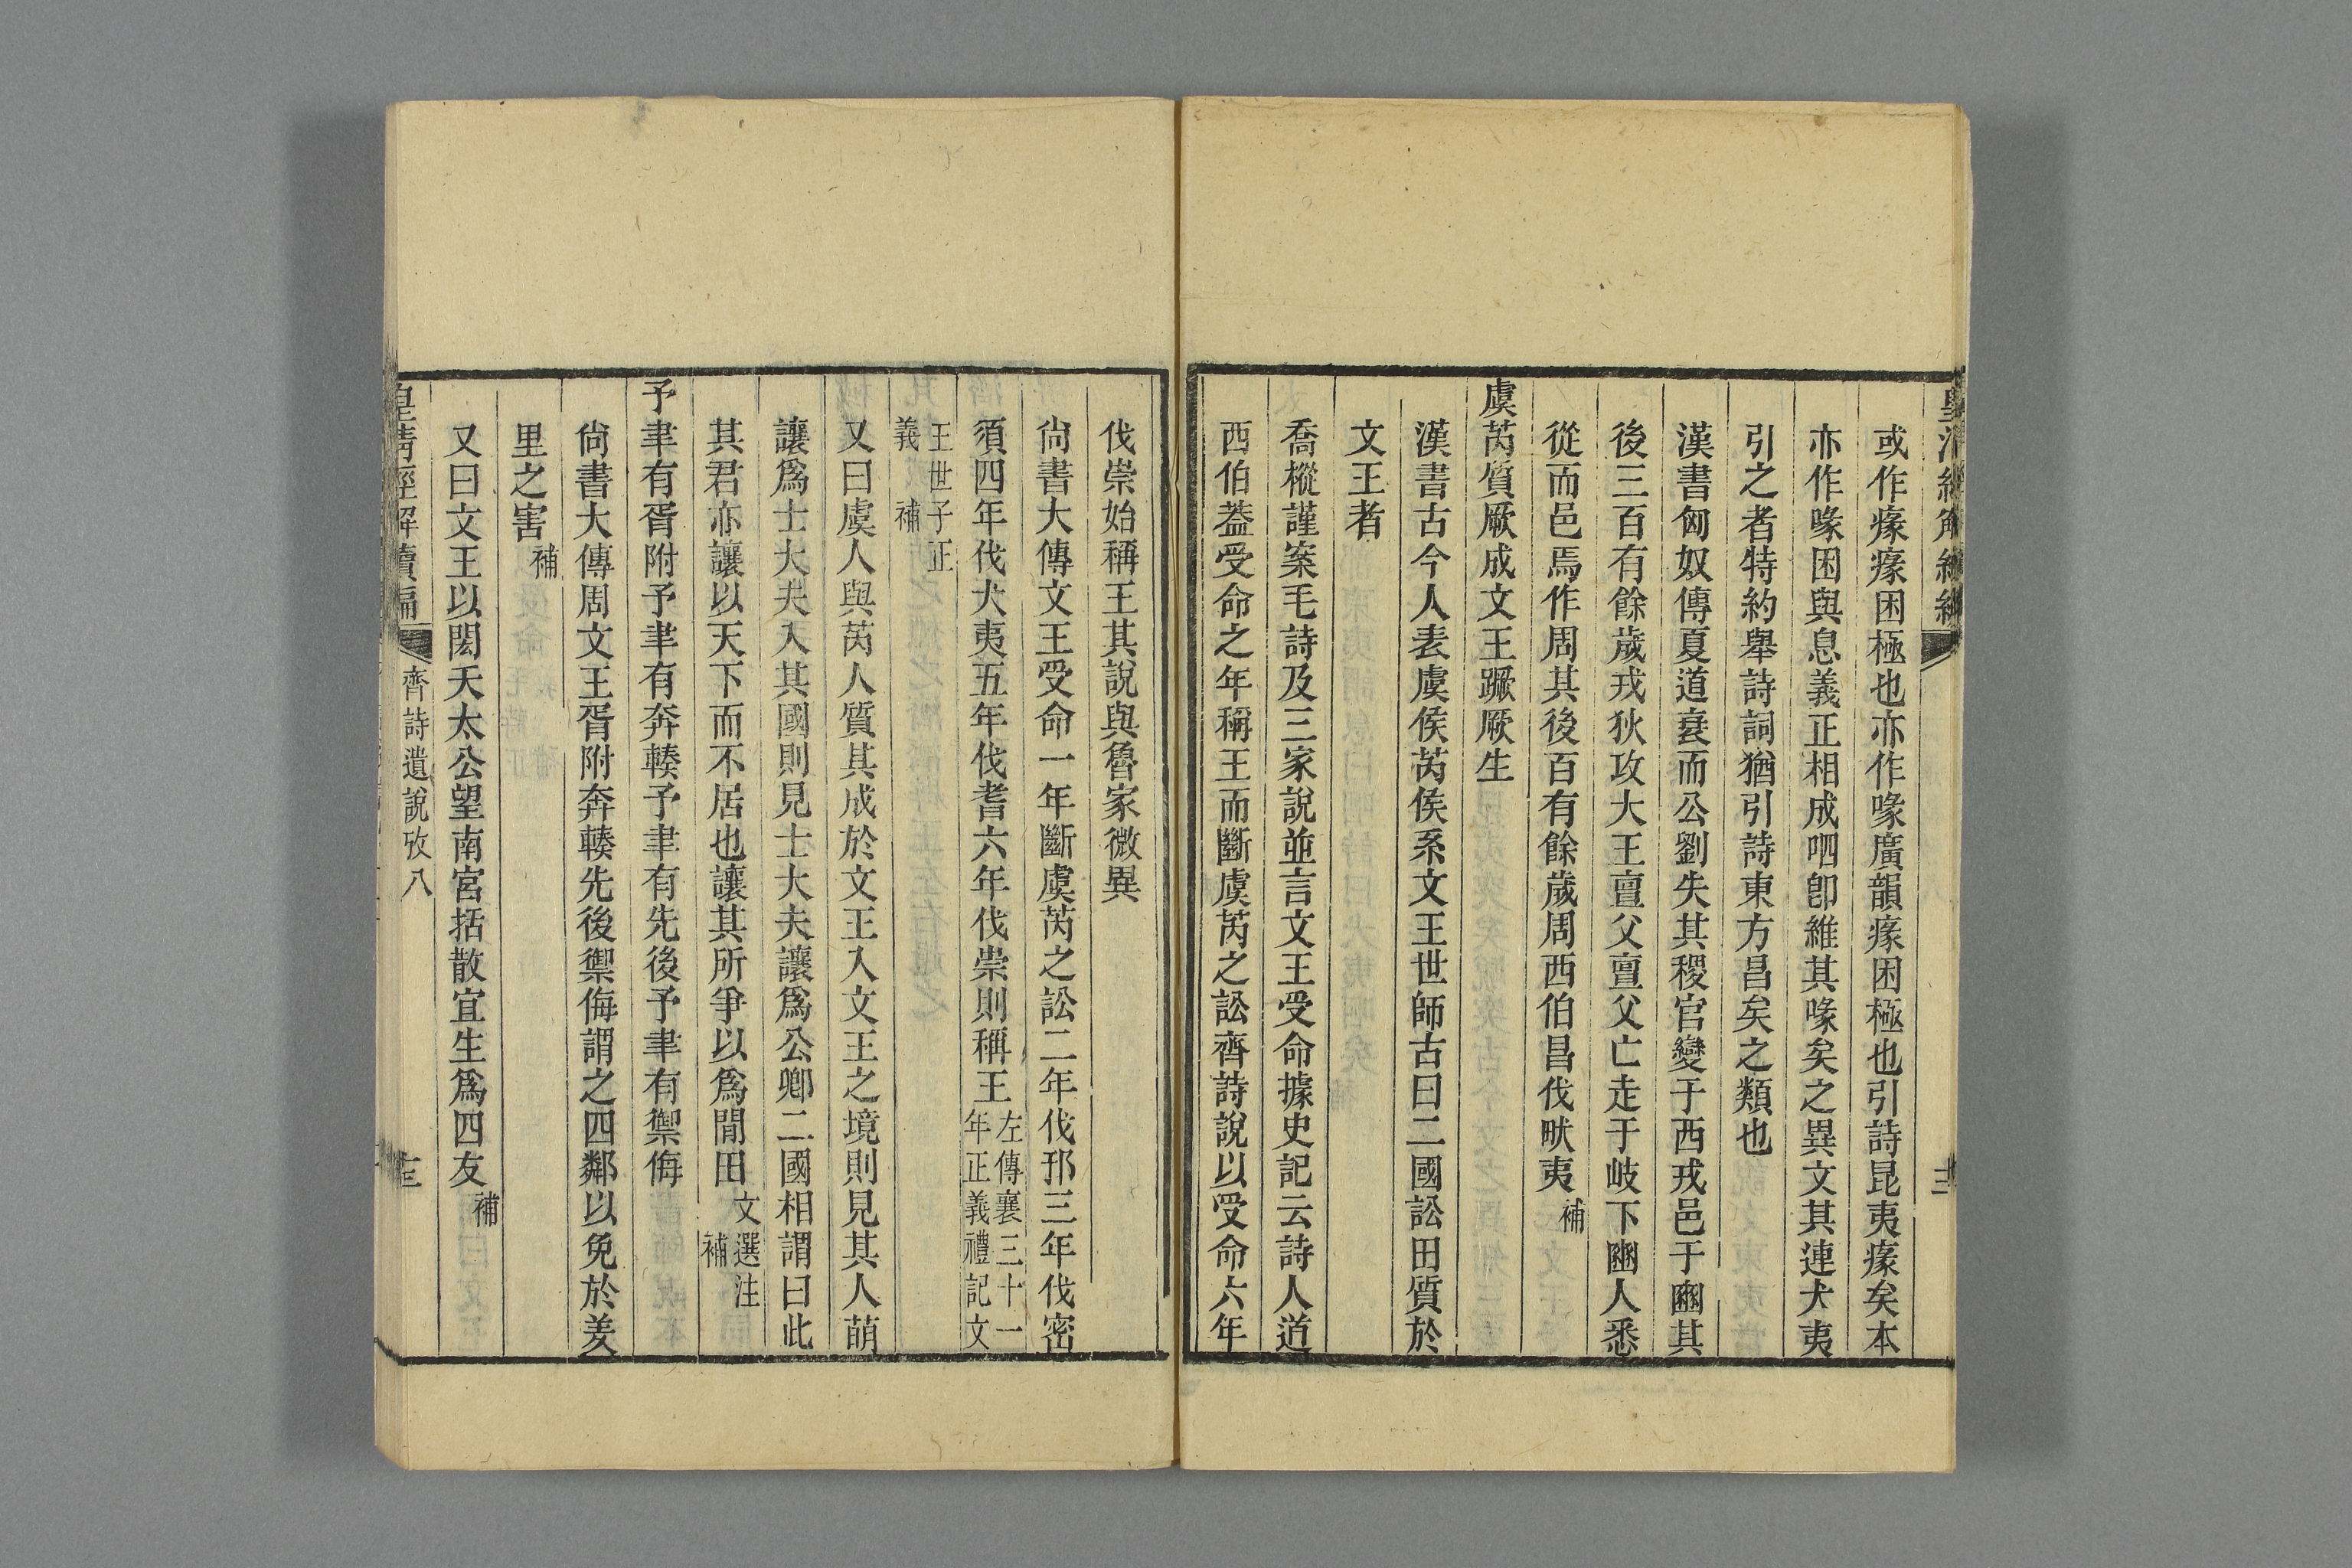 或作瘃瘃困極也亦作喙廣韻瘃困極也引詩昆夷瘃矣本
亦作喙困與息義正相成呬卽維其喙矣之異文其連犬夷
引之者特約舉詩詞猶引詩東方昌矣之類也
漢書匈奴傳夏道衰而公劉失其稷官變于西戎邑于豳其
後三百有餘歲戎狄攻大王亶父亶父亡走于岐下豳人悉
從而邑焉作周其後百有餘歲周西伯昌伐畎夷補
虞芮質厥成文王蹶厥生
漢書古今人表虞侯芮侯系文王世師古曰二國訟田質於
文王者
喬樅謹案毛詩及三家說並言文王受命據史記云詩人道
西伯葢受命之年稱王而斷虞芮之訟齊詩說以受命六年
伐崇始稱王其說與魯家微異
尙書大傳文王受命一年斷虞芮之訟二年伐邘三年伐密
須四年伐犬夷五年伐耆六年伐崇則稱王左傳襄三十一年正義禮記文
王世子正義 補
又曰虞人與芮人質其成於文王入文王之境則見其人萌
讓爲士大夫入其國則見士大夫讓爲公卿二國相謂曰此
其君亦讓以天下而不居也讓其所爭以爲閒田文選注 補
予聿有胥附予聿有奔輳予聿有先後予聿有禦侮
尙書大傳周文王胥附奔輳先後禦侮謂之四鄰以免於羑
里之害補
又曰文王以閎夭太公望南宮括散宜生爲四友補
皇淸經解續編 齊詩遺說攷八 十三